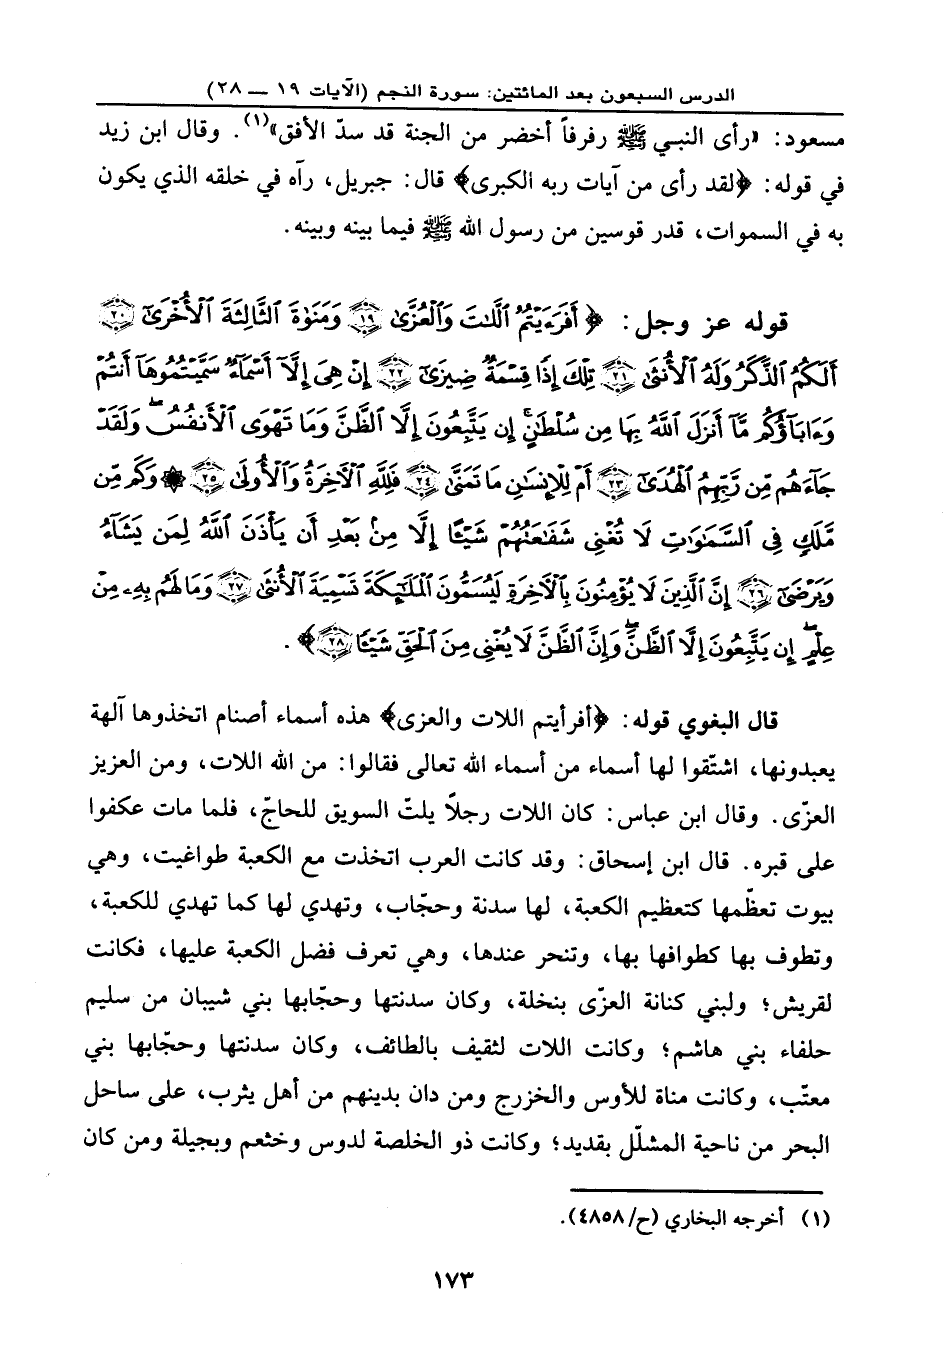 الدرس السبعون بعد المائتين: سورة النجم (الآيات ١٩ — ٢٨)
مسعود: «رأى النبي ﷺ رفرفاً أخضر من الجنة قد سدّ الأفق»(١). وقال ابن زيد
في قوله: ﴿لقد رأى من آيات ربه الكبرى﴾ قال: جبريل، رآه في خلقه الذي يكون
به في السموات، قدر قوسين من رسول الله ﷺ فيما بينه وبينه.
قوله عز وجل: ﴿أَفَرَءَيْتُمُ ٱللَّـٰتَ وَٱلْعُزَّىٰ ١٩ وَمَنَوٰةَ ٱلثَّالِثَةَ ٱلْأُخْرَىٰٓ ٢٠
أَلَكُمُ ٱلذَّكَرُ وَلَهُ ٱلْأُنثَىٰ ٢١ تِلْكَ إِذًا قِسْمَةٌ ضِيزَىٰٓ ٢٢ إِنْ هِىَ إِلَّآ أَسْمَآءٌ سَمَّيْتُمُوهَآ أَنتُمْ
وَءَابَآؤُكُم مَّآ أَنزَلَ ٱللَّهُ بِهَا مِن سُلْطَـٰنٍ ۚ إِن يَتَّبِعُونَ إِلَّا ٱلظَّنَّ وَمَا تَهْوَى ٱلْأَنفُسُ ۖ وَلَقَدْ
جَآءَهُم مِّن رَّبِّهِمُ ٱلْهُدَىٰٓ ٢٣ أَمْ لِلْإِنسَـٰنِ مَا تَمَنَّىٰ ٢٤ فَلِلَّهِ ٱلْـَٔاخِرَةُ وَٱلْأُولَىٰ ٢٥ ۞ وَكَم مِّن
مَّلَكٍ فِى ٱلسَّمَـٰوَٰتِ لَا تُغْنِى شَفَـٰعَتُهُمْ شَيْـًٔا إِلَّا مِنۢ بَعْدِ أَن يَأْذَنَ ٱللَّهُ لِمَن يَشَآءُ
وَيَرْضَىٰٓ ٢٦ إِنَّ ٱلَّذِينَ لَا يُؤْمِنُونَ بِٱلْـَٔاخِرَةِ لَيُسَمُّونَ ٱلْمَلَـٰٓئِكَةَ تَسْمِيَةَ ٱلْأُنثَىٰ ٢٧ وَمَا لَهُم بِهِۦ مِنْ
عِلْمٍ ۖ إِن يَتَّبِعُونَ إِلَّا ٱلظَّنَّ ۖ وَإِنَّ ٱلظَّنَّ لَا يُغْنِى مِنَ ٱلْحَقِّ شَيْـًٔا ٢٨﴾.
قال البغوي قوله: ﴿أفرأيتم اللات والعزى﴾ هذه أسماء أصنام اتخذوها آلهة
يعبدونها، اشتّقوا لها أسماء من أسماء الله تعالى فقالوا: من الله اللات، ومن العزيز
العزّى. وقال ابن عباس: كان اللات رجلاً يلتّ السويق للحاجّ، فلما مات عكفوا
على قبره. قال ابن إسحاق: وقد كانت العرب اتخذت مع الكعبة طواغيت، وهي
بيوت تعظّمها كتعظيم الكعبة، لها سدنة وحجّاب، وتهدي لها كما تهدي للكعبة،
وتطوف بها كطوافها بها، وتنحر عندها، وهي تعرف فضل الكعبة عليها، فكانت
لقريش؛ ولبني كنانة العزّى بنخلة، وكان سدنتها وحجّابها بني شيبان من سليم
حلفاء بني هاشم؛ وكانت اللات لثقيف بالطائف، وكان سدنتها وحجّابها بني
معتّب، وكانت مناة للأوس والخزرج ومن دان بدينهم من أهل يثرب، على ساحل
البحر من ناحية المشلّل بقديد؛ وكانت ذو الخلصة لدوس وخثعم وبجيلة ومن كان
(١) أخرجه البخاري (ح/٤٨٥٨).
١٧٣